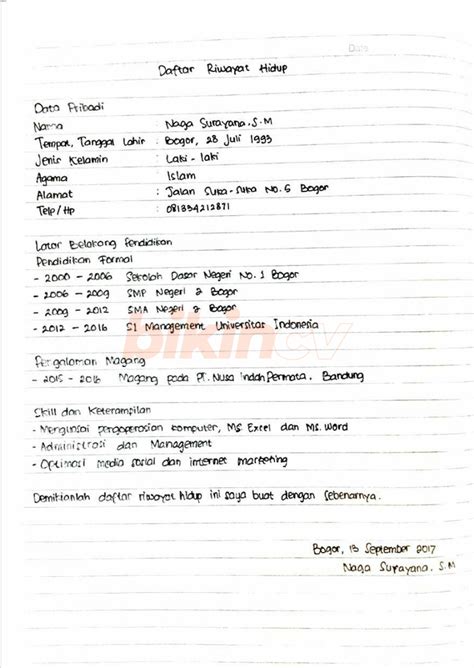 Date
Daftar Riwayat Hidup
Data Pribadi
Nama : Naga Surayana, S.M
Tempat, Tanggal Lahir : Bogor, 28 Juli 1993
Jenis Kelamin : Laki - laki
Agama : Islam
Alamat : Jalan Suka-Suka No. 6 Bogor
Telp/Hp : 081334212871
Latar Belakang Pendidikan
Pendidikan Formal
- 2000 - 2006 Sekolah Dasar Negeri No. 1 Bogor
- 2006 - 2009 SMP Negeri 2 Bogor
- 2009 - 2012 SMA Negeri 2 Bogor
- 2012 - 2016 S1 Management Universitas Indonesia
bikincv
Pengalaman Magang
- 2015 - 2016 Magang pada PT. Nusa Indah Permata, Bandung
Skill dan Keterampilan
- Menguasai pengoperasian komputer, MS Excel dan MS. Word
- Administrasi dan Management
- Optimasi media sosial dan internet marketing
Demikianlah daftar riwayat hidup ini saya buat dengan sebenarnya.
Bogor, 13 September 2017
Naga Surayana, S.M